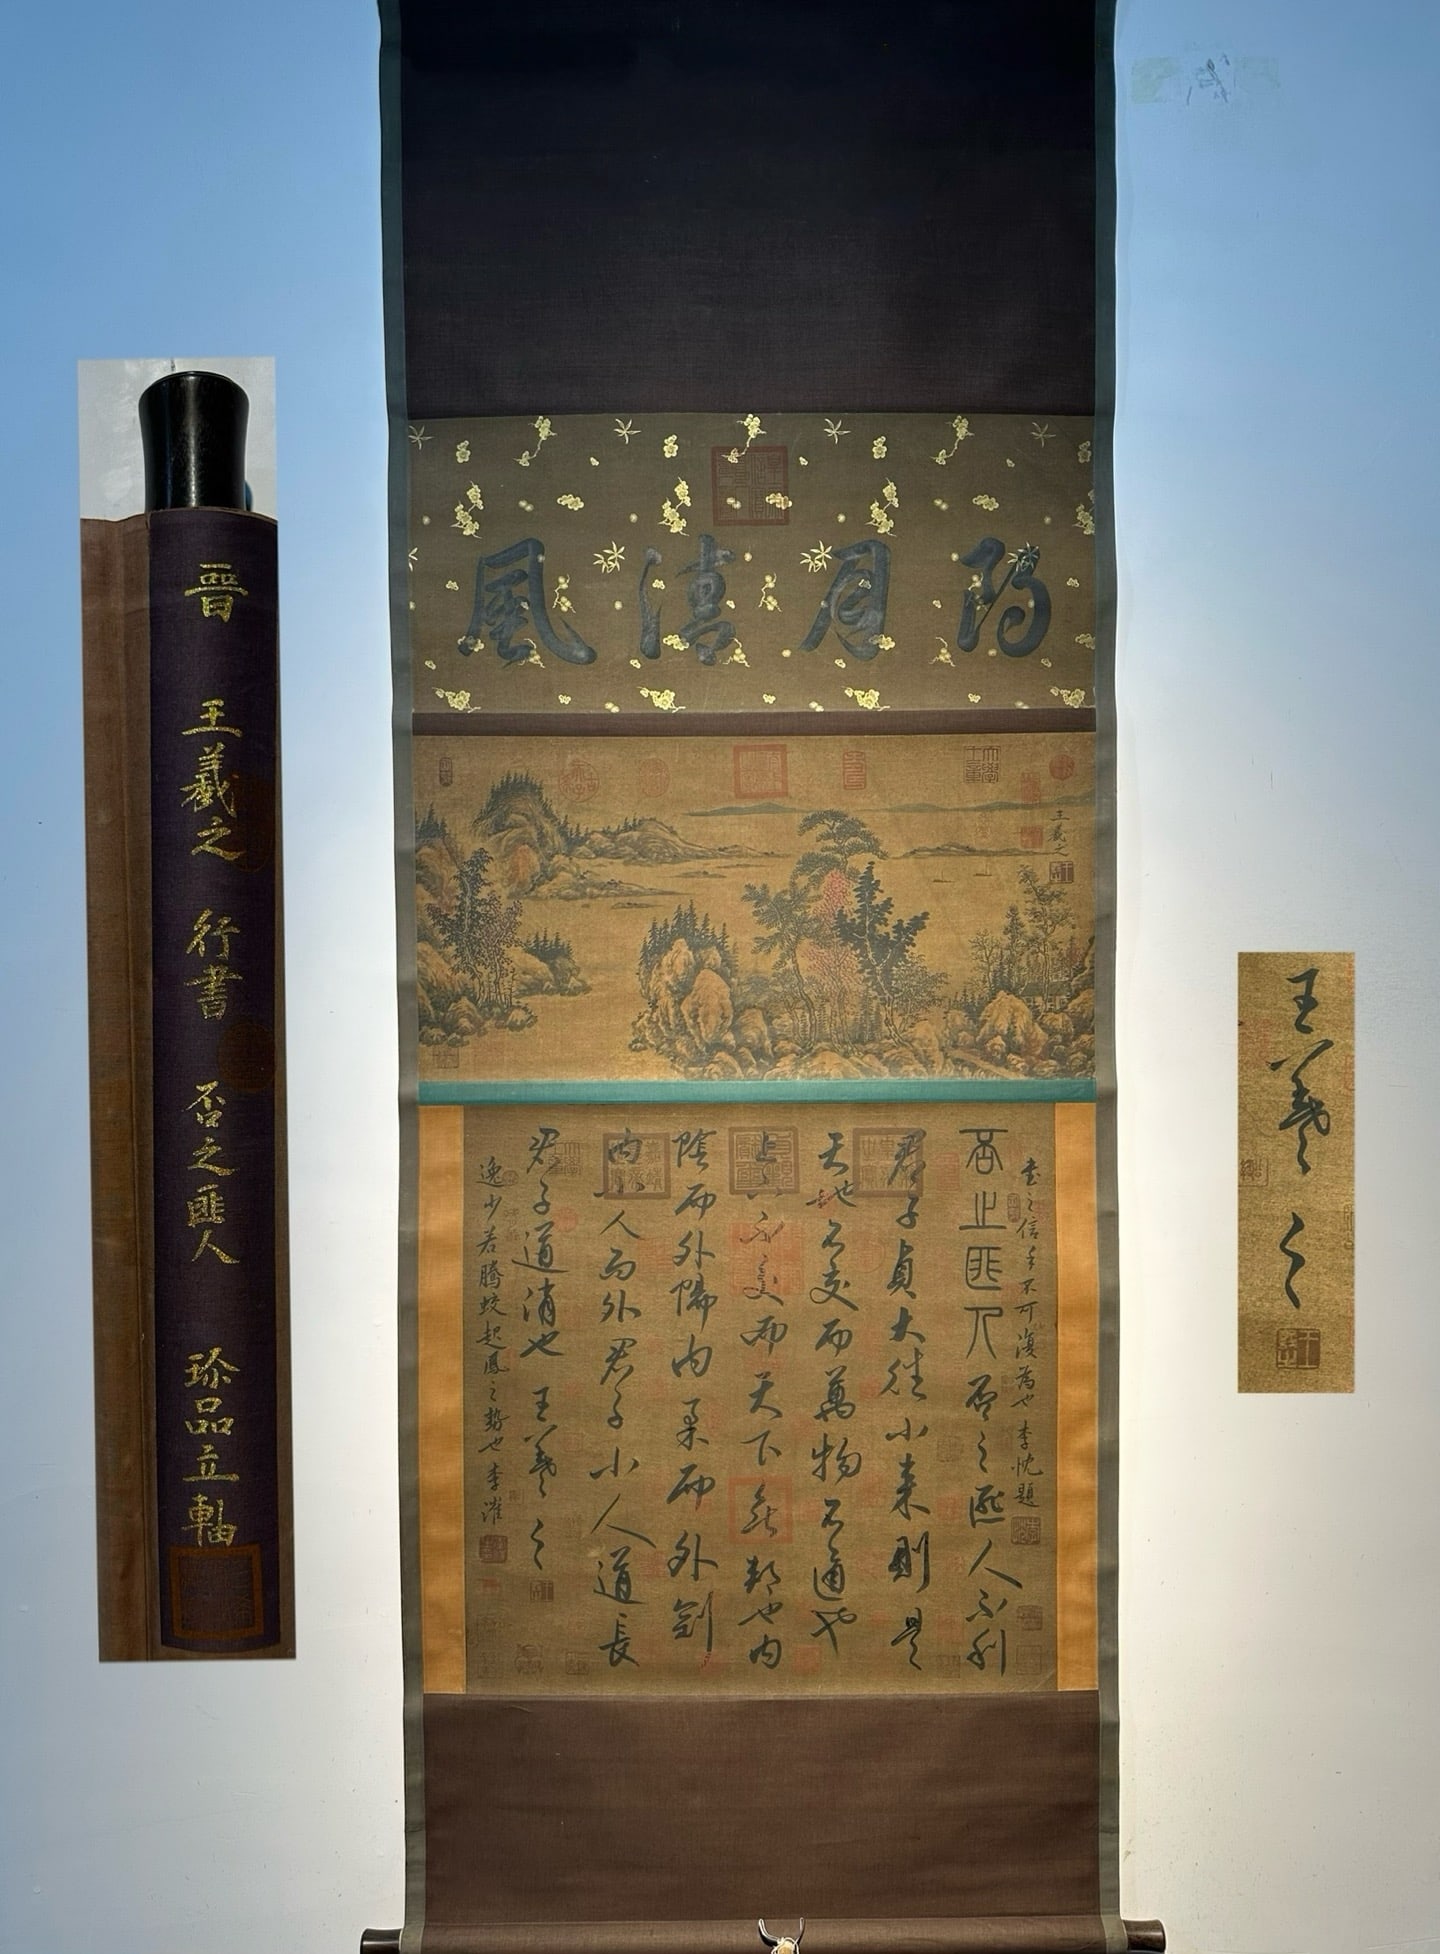 晉 王羲之 行書 否之匪人 珍品立軸
風清月朗
王羲之
書之信手不可復為也 李忱題
否止匪人 否之匪人不利
君子貞大往小来則是
天地不交而萬物不通也
上下不交而天下無邦也内
陰而外陽内柔而外劍
内小人而外君子小人道長
君子道消也 王羲之
逸少若騰蛟起鳳之勢也 李漼
王羲之